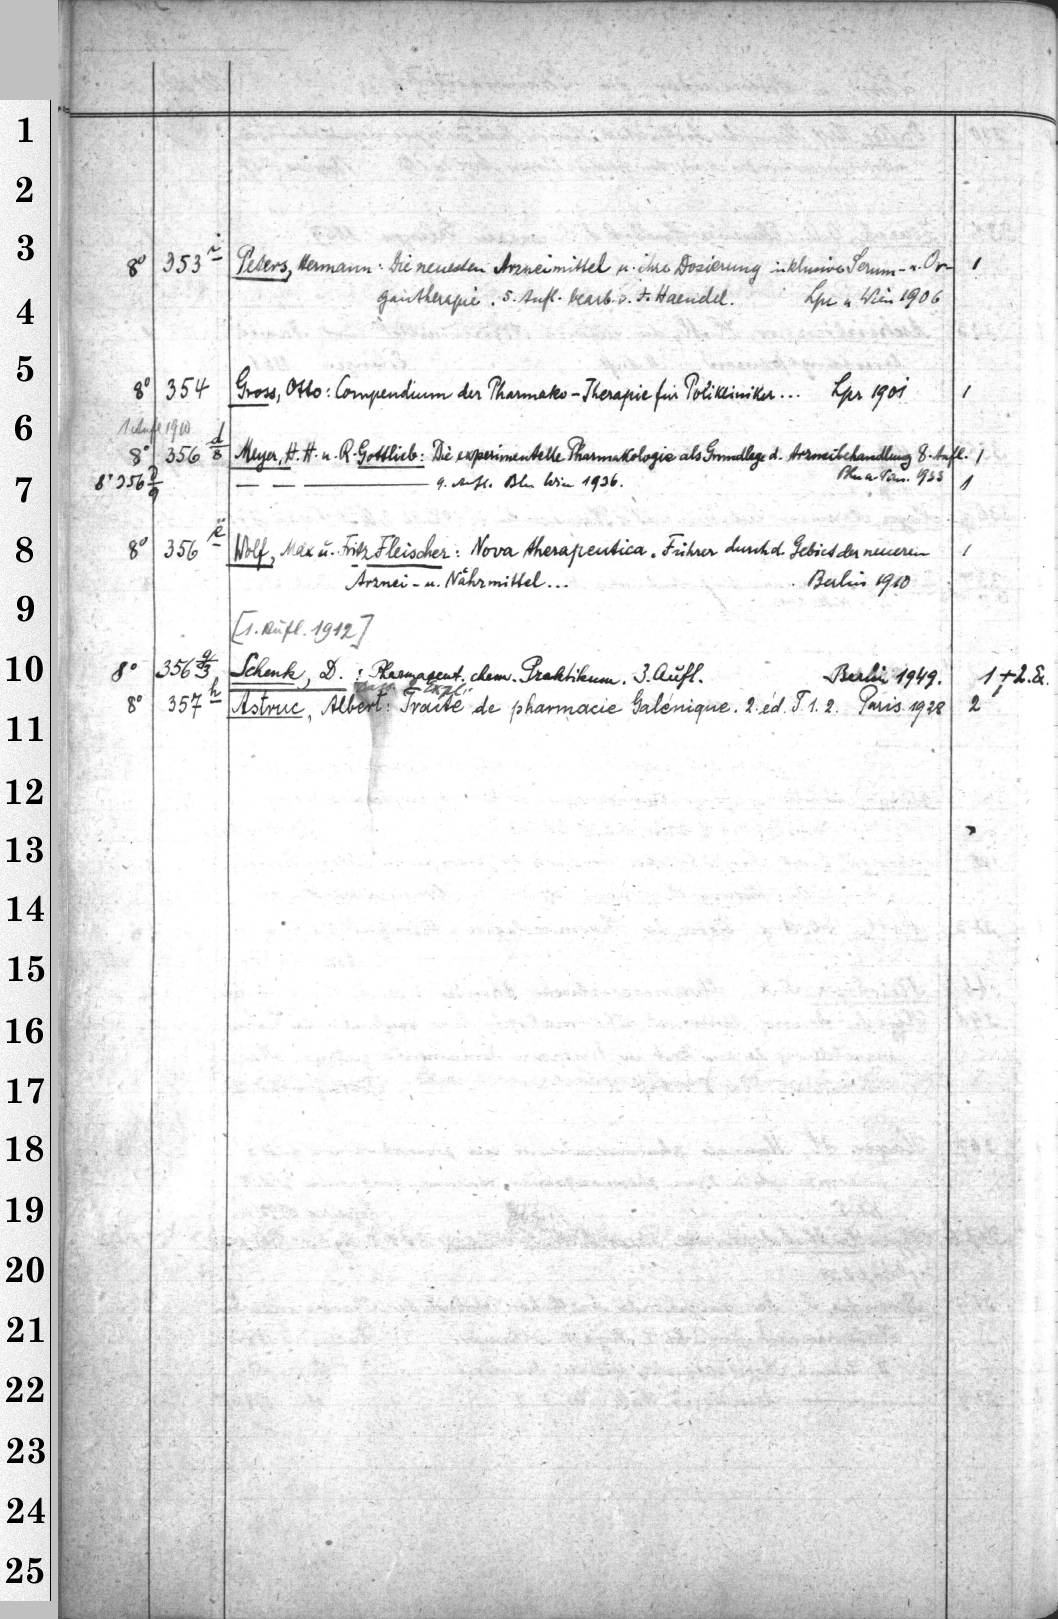 1
2
3
8° 353 i Peters, Hermann: Die neuesten Arzneimittel u. ihre Dosierung inklusive Serum- u. Or- 1
gantherapie. 5. Aufl. bearb. v. Fr. Haendel. Lpz u Wien 1906
4
5
8° 354 Gross, Otto: Compendium der Pharmako-Therapie für Polikliniker... Lpz 1901 1
6
1 Aufl 1910
8° 356 d/8 Meyer, H. H. u. R. Gottlieb: Die experimentelle Pharmakologie als Grundlage d. Arzneibehandlung 8. Aufl. 1
Bln u. Wien. 1933
7
8° 356 d/9 — — — 9. Aufl. Bln Wien 1936. 1
8
8° 356 e Wolf, Max u. Fritz Fleischer: Nova therapeutica. Führer durch d. Gebiet der neueren 1
Arznei- u. Nährmittel... Berlin 1910
9
[1. Aufl. 1912]
10
8° 356 g/3 Schenk, D.: Pharmazeut. chem. Praktikum. 3. Aufl. Berlin 1949. 1 + 2. Ex.
8° 357 h Astruc, Albert: Traité de pharmacie Galénique. 2. éd. T 1. 2. Paris 1928 2
11
12
13
14
15
16
17
18
19
20
21
22
23
24
25